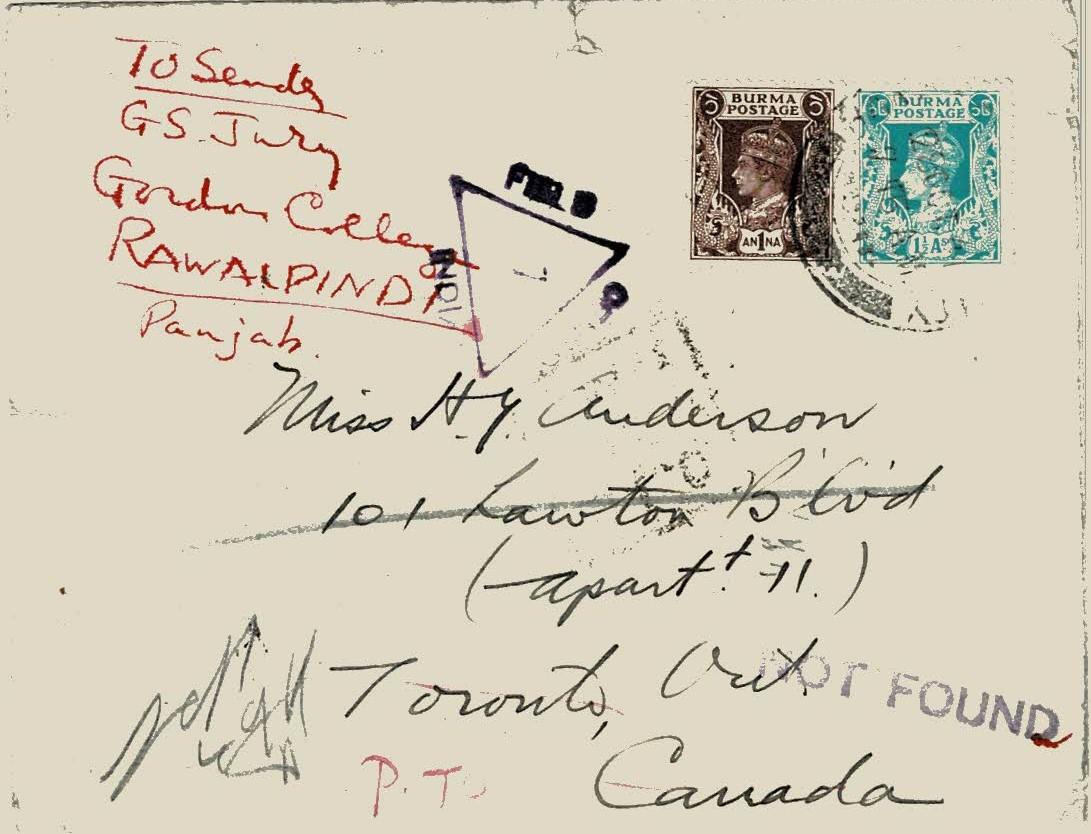 To Sender
G.S. Jury
Gordon College
RAWALPINDI
Panjab.
BURMA
POSTAGE
AN1NA
BURMA
POSTAGE
1½As
INDIA
Miss H.Y. Anderson
101 Lawton B'lv'd
(apart't 11.)
Toronto, Ont.
NOT FOUND
P.T.
Canada